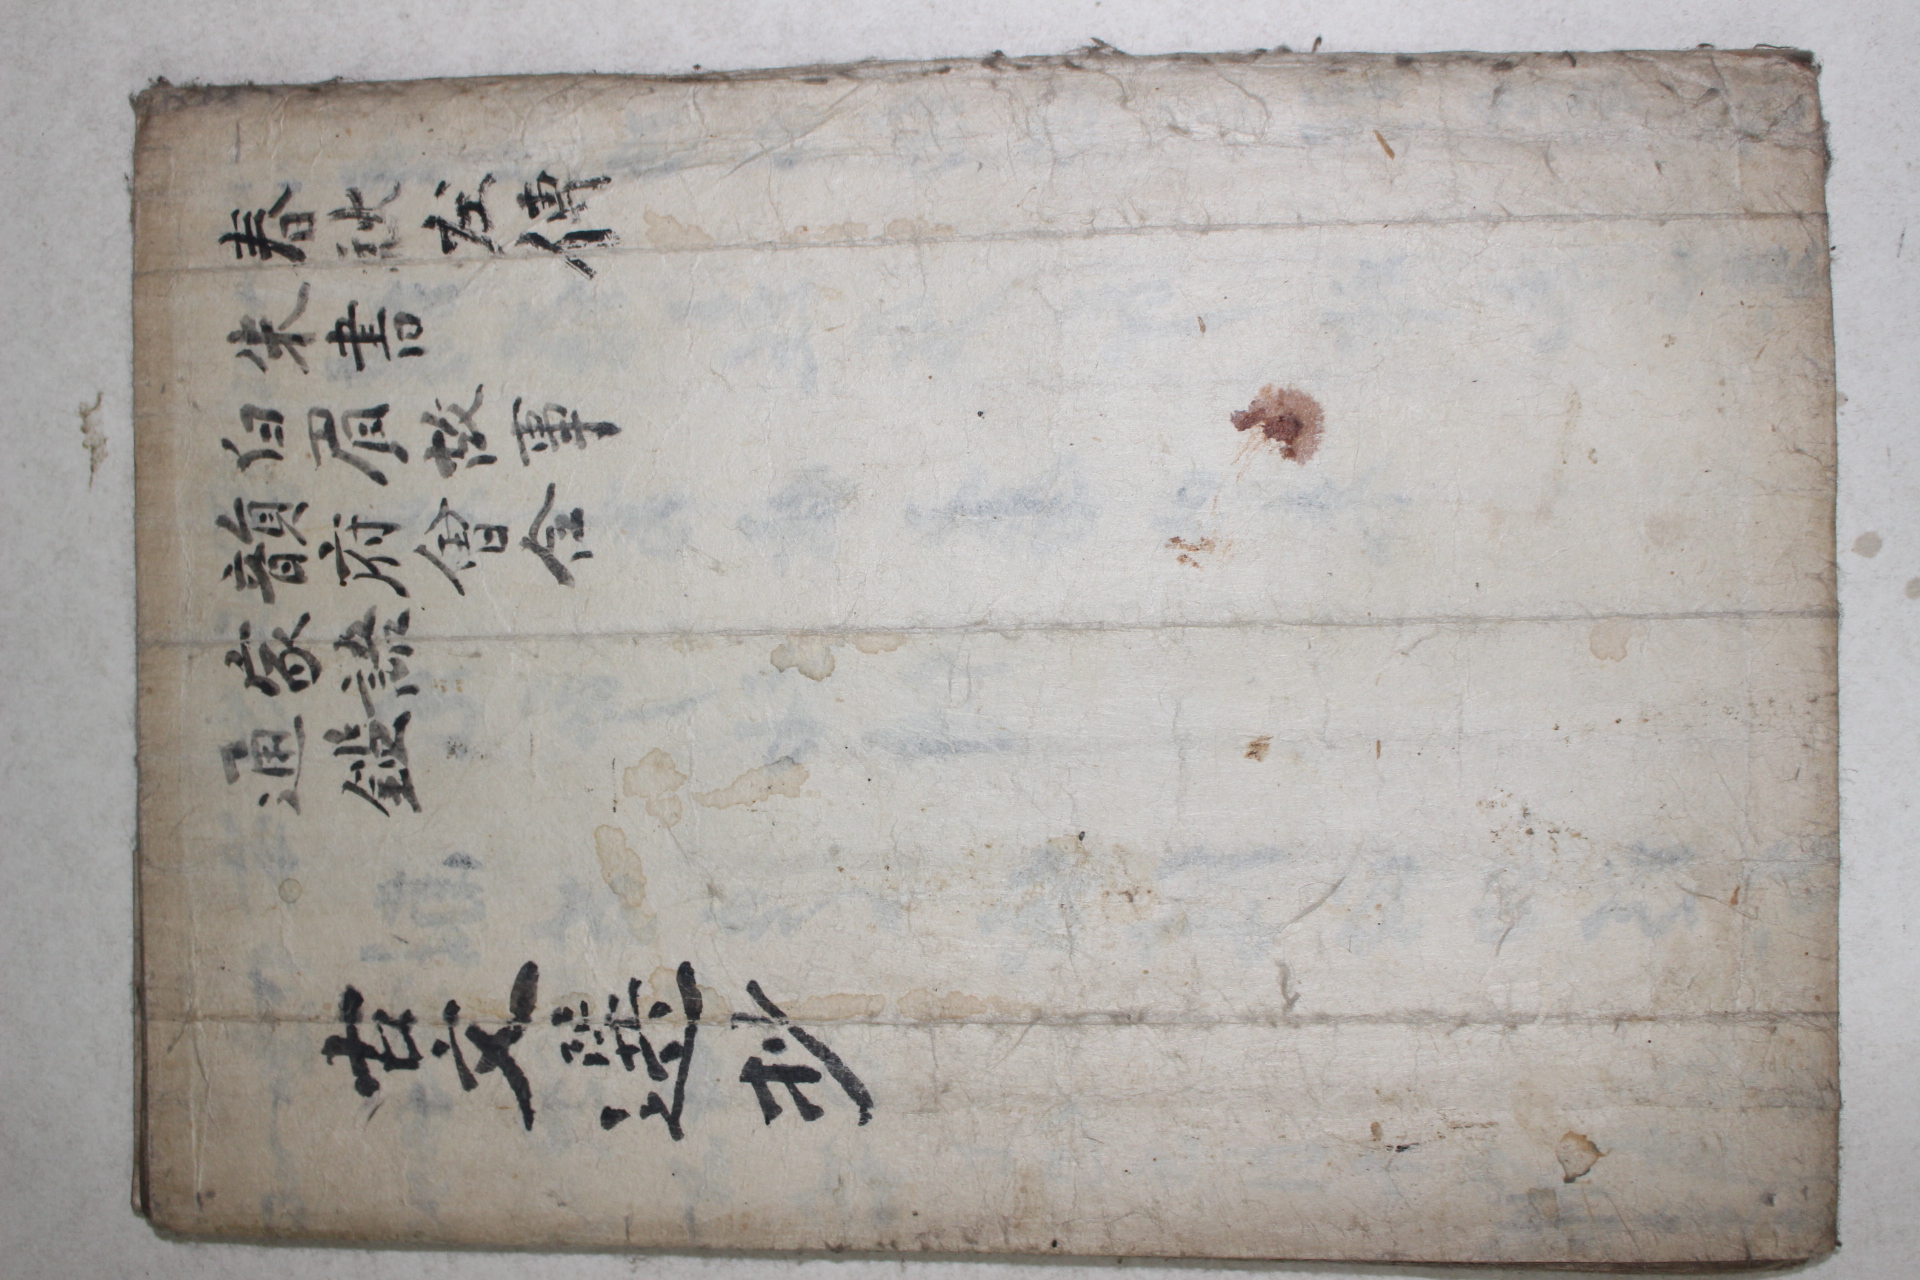 春秋左傳
朱書
白眉故事
韻府會全
家語
通鑑
古文選抄